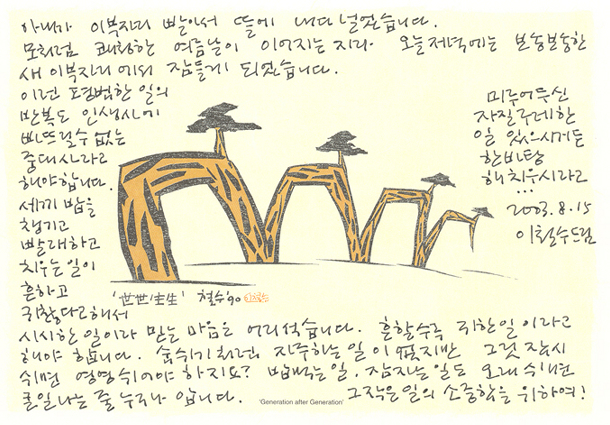 아내가 이부자리 빨아서 뜰에 내다 널었습니다.
모처럼 쾌청한 여름날이 이어지는지라 오늘저녁에는 보송보송한
새 이부자리에서 잠들게 되었습니다.
이런 평범한 일의
반복도 인생사에
빠뜨릴 수 없는
중대사라고
해야 합니다.
세끼 밥을
챙기고
빨래하고
치우는 일이
흔하고
귀찮다고 해서
시시한 일이라 믿는 마음은 어리석습니다. 흔할수록 귀한 일이라고
해야 합니다. 숨쉬기처럼 자주하는 일이 없지만 그것 잠시
쉬면 영영 쉬어야 하지요? 밥먹는 일, 잠자는 일도 오래 쉬면
큰일나는 줄 누구나 압니다. 그 작은 일의 소중함을 위하여!
미루어두신
자질구레한
일 있으시거든
한바탕
해치우시라고
...
2003.8.15
이철수드림
'世世生生' 철수 '90
'Generation after Generation'